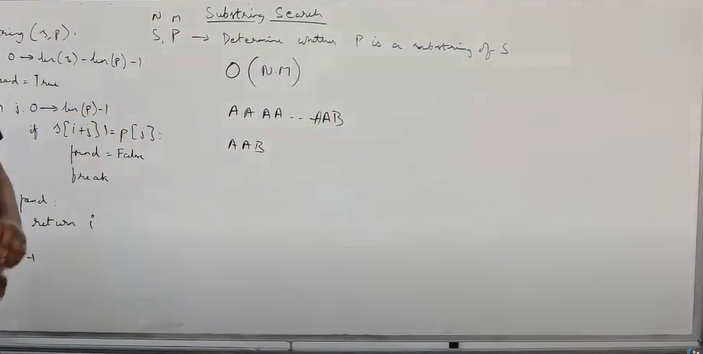 ring (s,p).
0 → len(s) - len(p) - 1
= True
j: 0 → len(p) - 1
if s[i+j] != p[j]:
found = False
break
found:
return i
-1
N M Substring Search
S, P → Determine whether P is a substring of S
O(N.M)
A A A A .. AAB
A A B